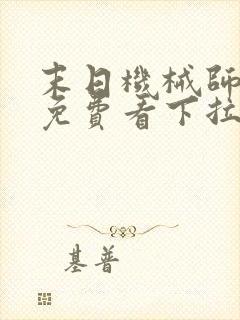 末日機械師
免費看下拉
基普